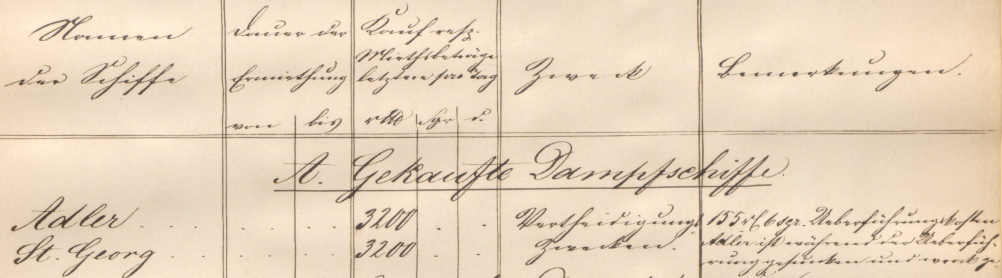 Namen
der Schiffe
Dauer der
Ermiethung
von bis
Kauf resp.
Miethsbeträge
letztere pro Tag
Sgr
Zweck
Bemerkungen.
A. Gekaufte Dampfschiffe.
Adler . . . . . . . 3200 . . Vertheidigungs
St. Georg . . . . . . 3200 . . Zwecken.
155 6 sgr. Ueberführungskosten
Adler ist während der Ueberfüh-
rung gesunken und wrack ge